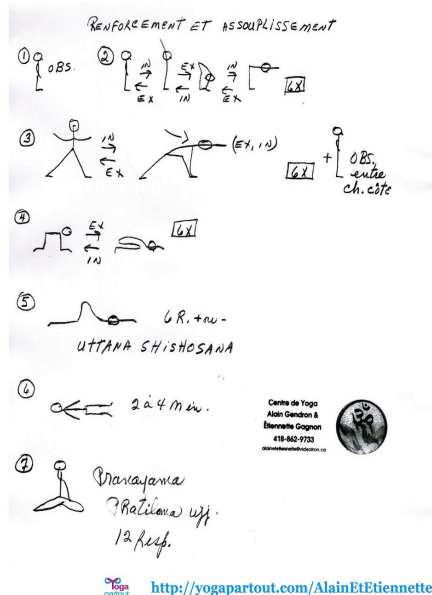 RENFORCEMENT ET ASSOUPLISSEMENT
① OBS.
② IN EX IN
EX IN EX
6X
③ IN
EX
(EX, IN)
6X
+ OBS.
entre
ch. côté
④ EX
IN
6X
⑤ 6 R. + ou -
UTTANA SHISHOSANA
⑥ 2 à 4 min.
Centre de Yoga
Alain Gendron &
Étiennette Gagnon
418-862-9733
alainetetiennette@videotron.ca
⑦ Pranayama
PRatiloma ujj.
12 Resp.
Yoga
partout
http://yogapartout.com/AlainEtEtiennette